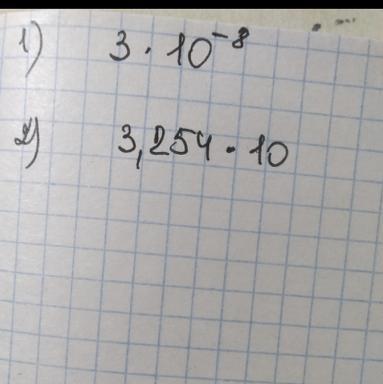 1) 3 · 10⁻⁸
2) 3,254 · 10